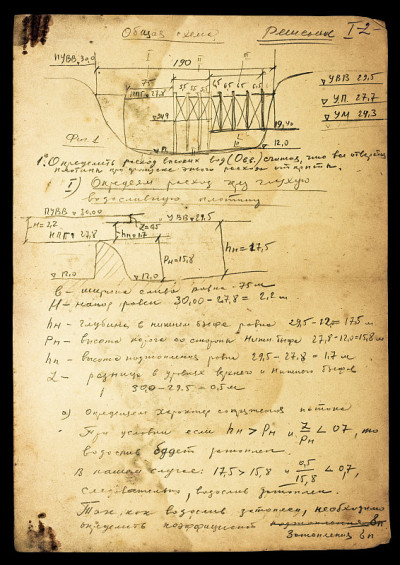 Общая схема. Решение I-2-
ПУВВ 30,0 I II б
190
75
УВВ 29,5
НПГ 27,8
УП 27,7
УМ 24,3
12,0
Фиг. 1
1° Определить расход высоких вод (Qвв) считая, что все отверстия
плотины при пропуске этого расхода открыты.
I) Определяем расход через глухую
водосливную плотину
ПУВВ 30,00 УВВ 29,5
H=2,2 Z=0,5
НПГ 27,8 hп=1,7 hн=17,5
Pн=15,8
12,0 12,0
b - ширина слива равна 75м
H - напор равен 30,00-27,8 = 2,2 м
hн - глубина в нижнем бьефе равна 29,5-12,0=17,5 м
Pн - высота порога со стороны нижн. бьефа 27,8-12,0=15,8м
hп - высота подтопления равна 29,5-27,8=1.7 м
Z - разница в уровнях верхнего и нижнего бьефов
30,0-29,5=0,5 м
а) Определяем характер сопряжения потока
При условии если hн > Pн и Z/Pн < 0,7, то
водослив будет затоплен.
В нашем случае: 17,5 > 15,8 и 0,5/15,8 < 0,7,
следовательно, водослив затоплен.
Так как водослив затоплен, необходимо
определить коэффициент
затопления бп